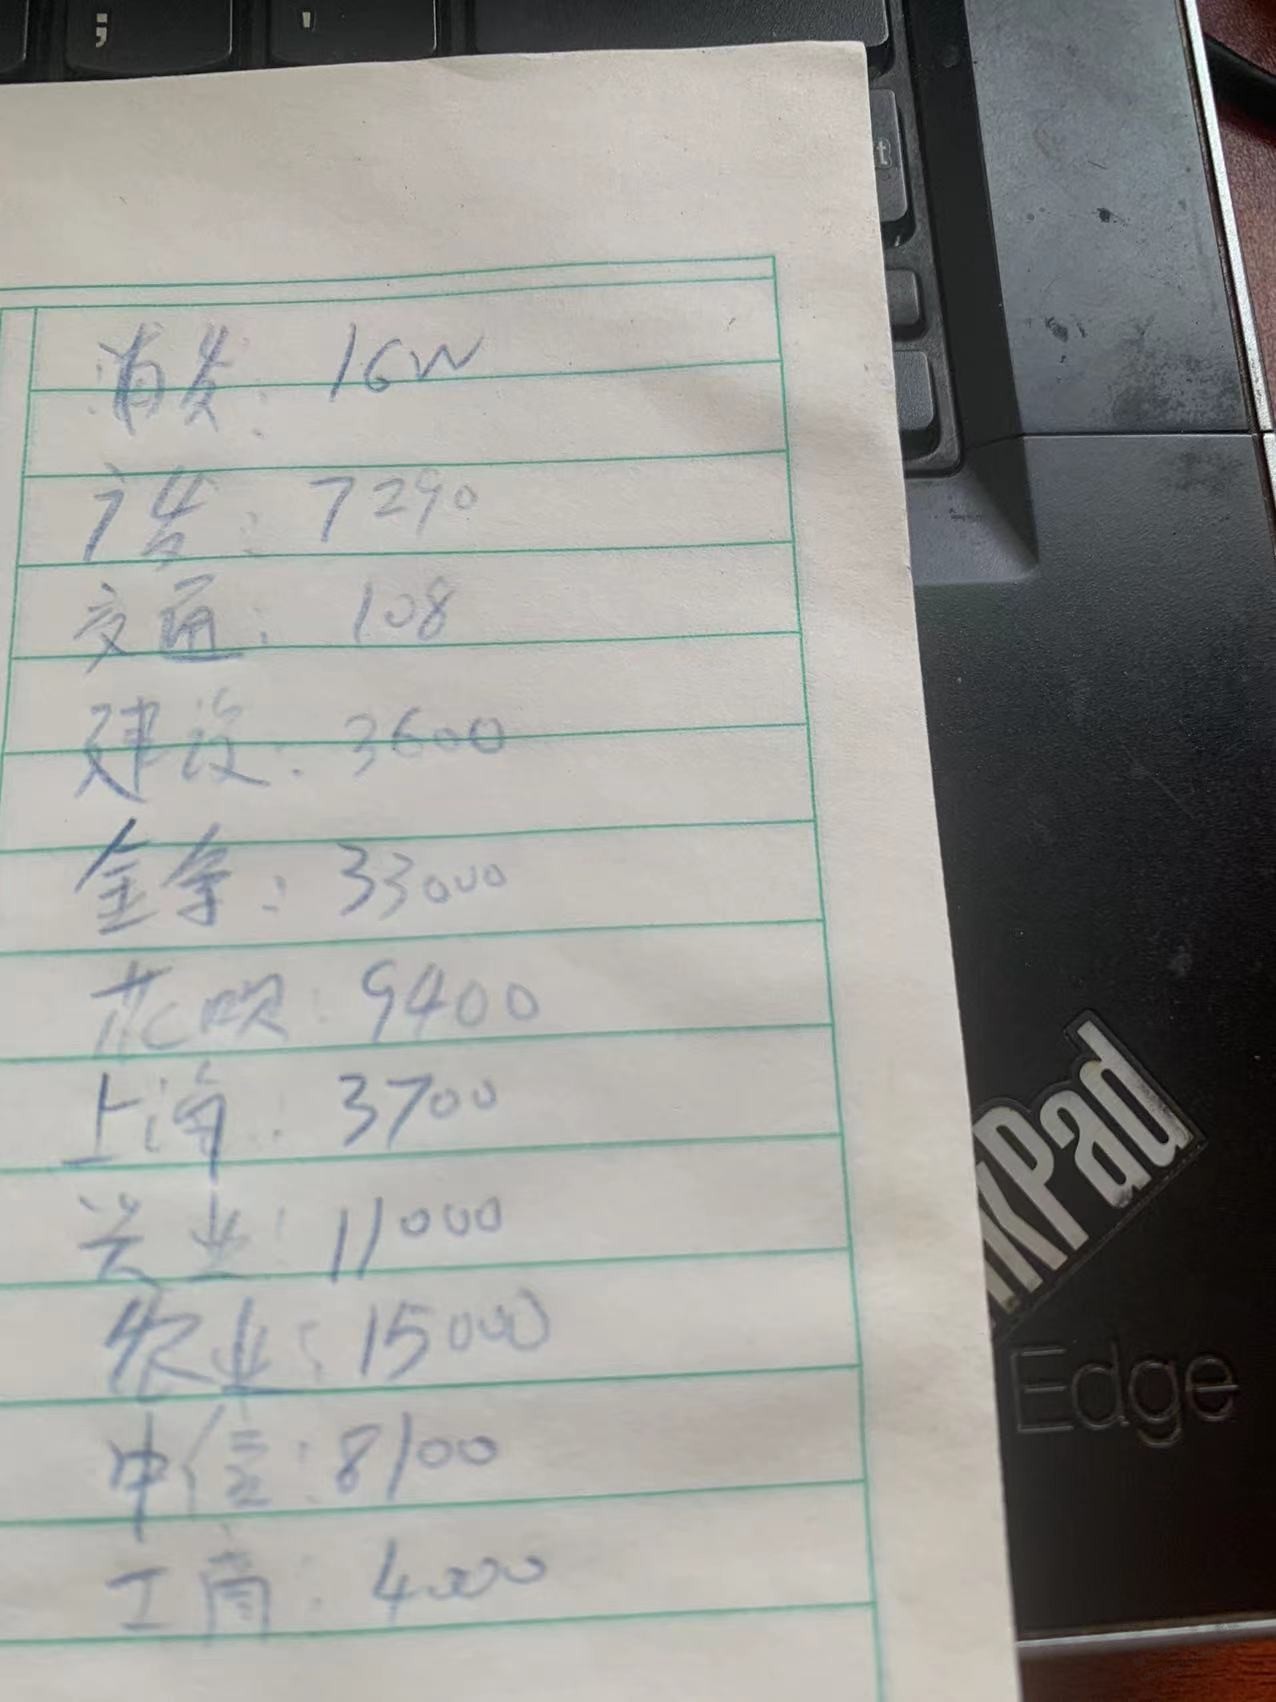 ;
'
t
消费: 16W
广发: 7290
交通: 108
建设: 3600
金条: 33000
花呗: 9400
上海: 3700
兴业: 11000
农业: 15000
中信: 8100
工商: 4000
kPad
Edge